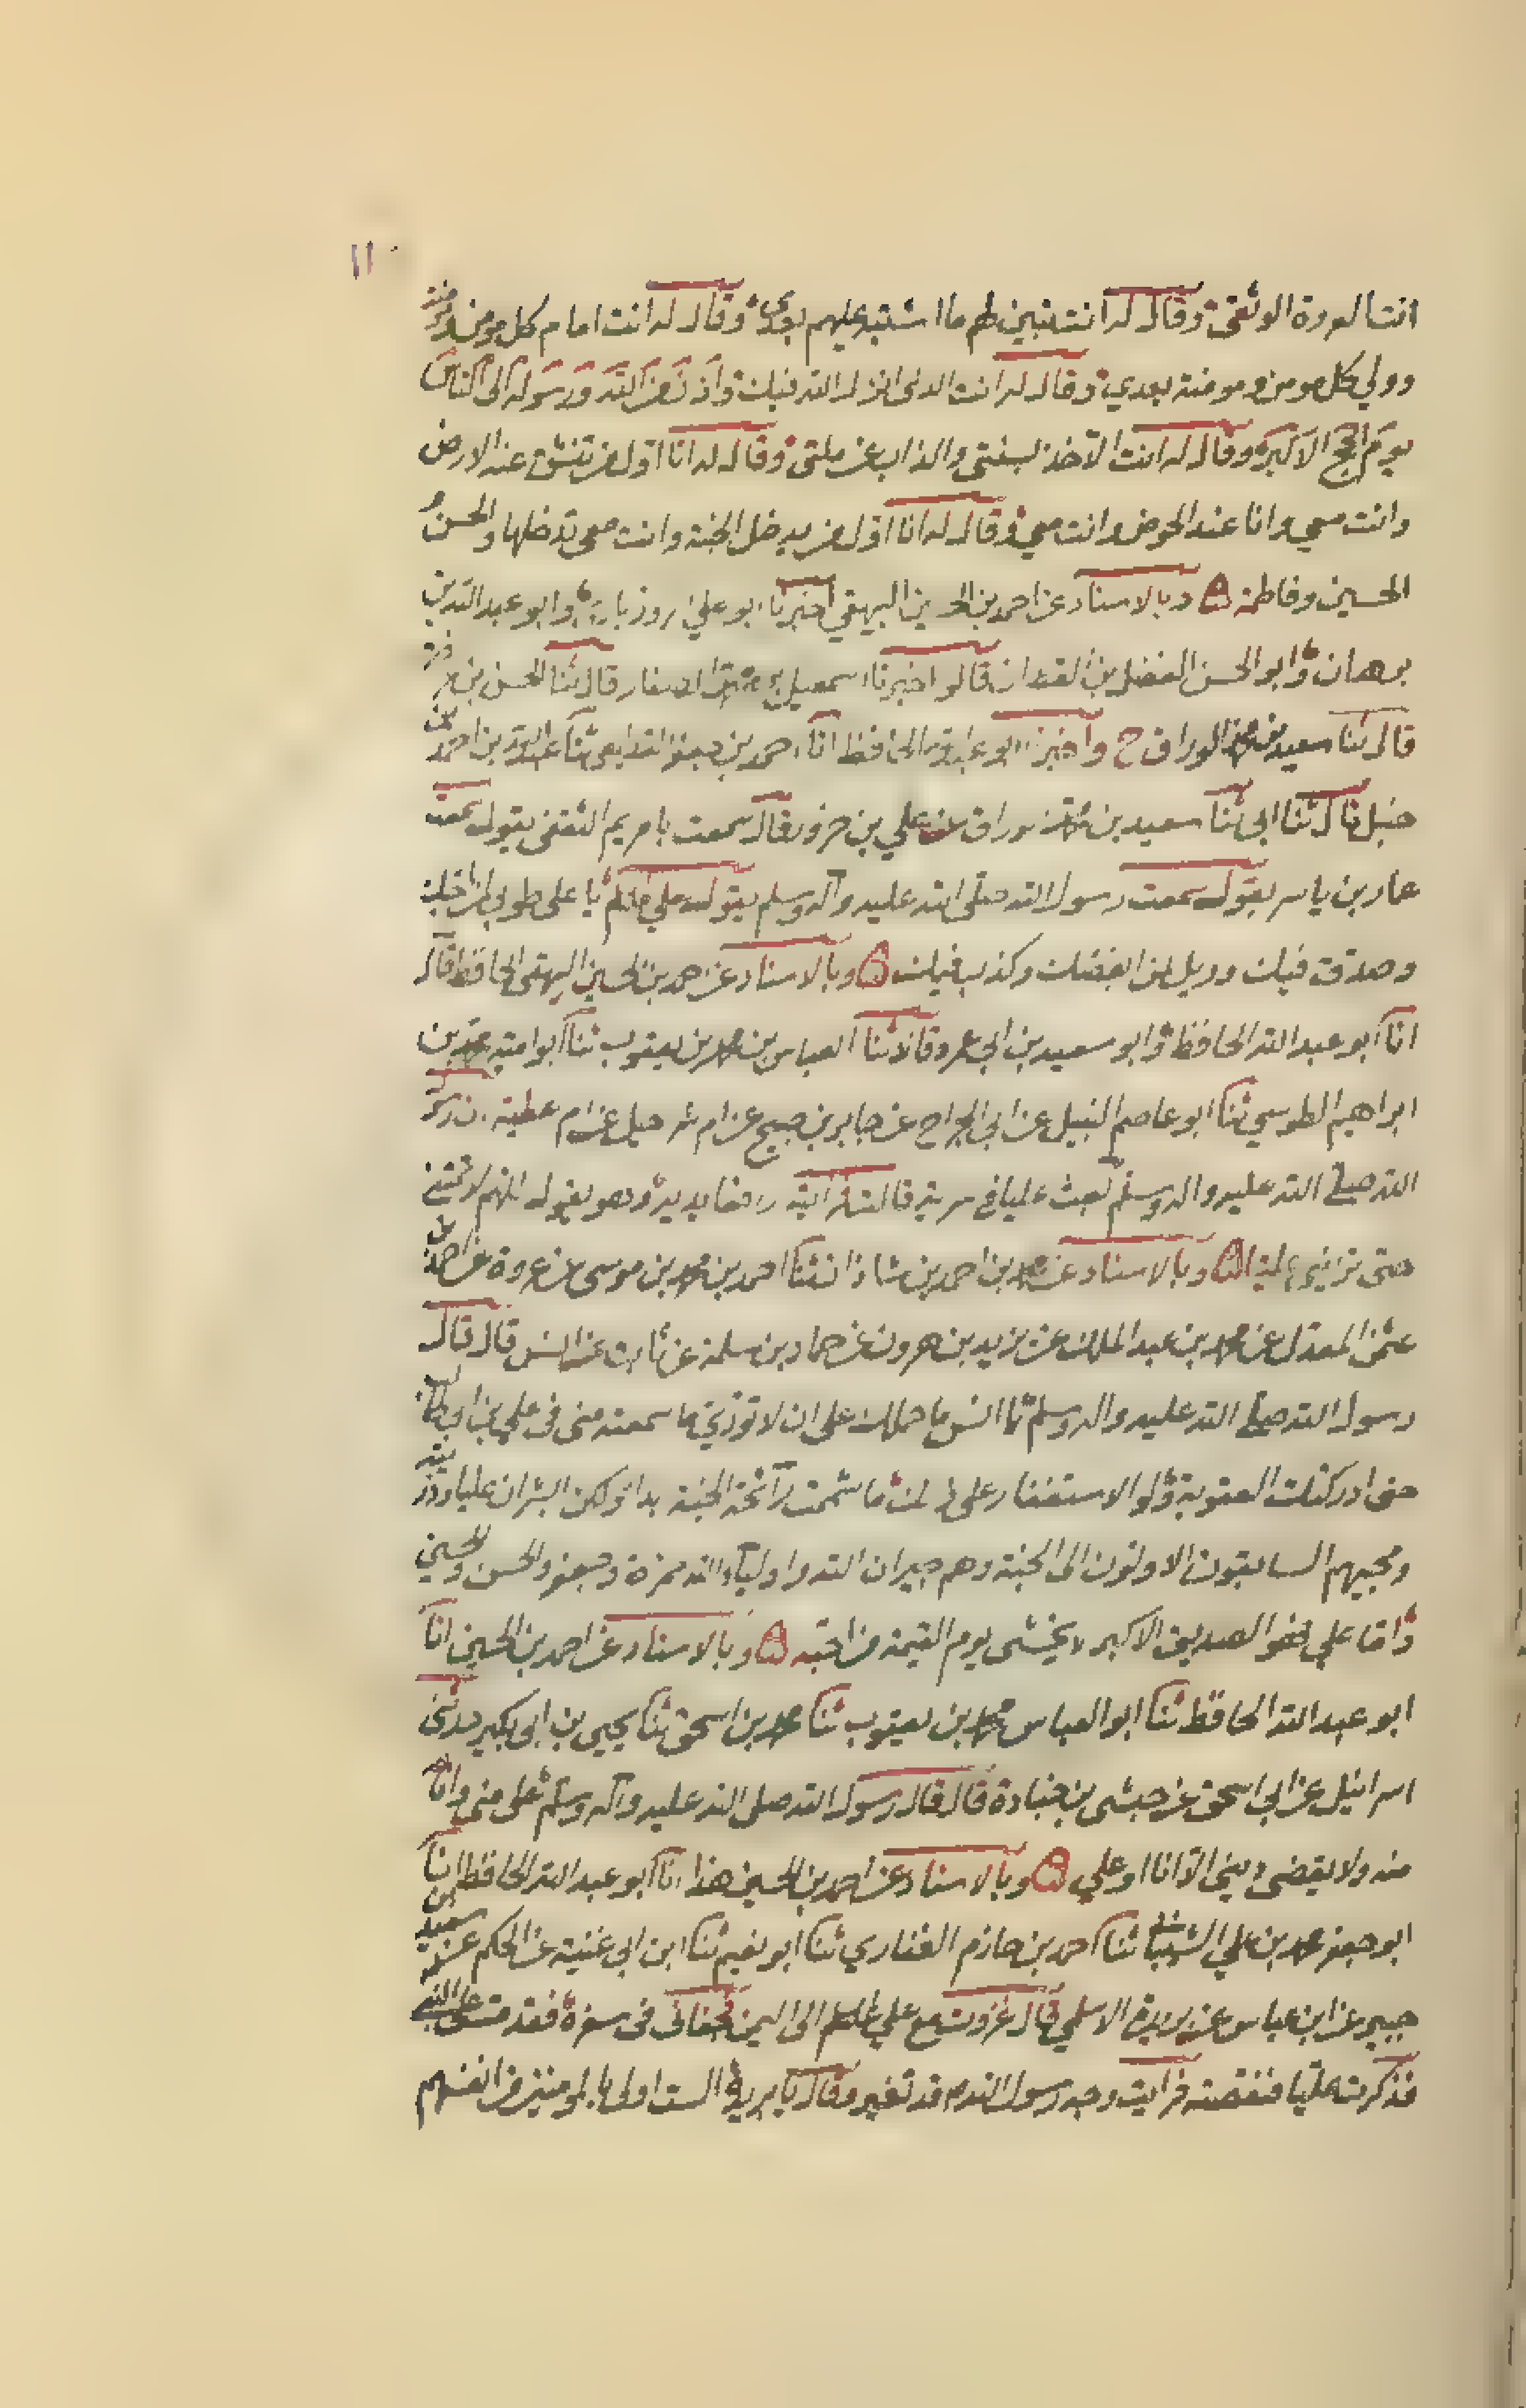 ١١
انت العروة الوثقى وقال له انت تبين لهم ما اشتبه عليهم بعدي وقال له انت امام كل مومن ومومنة
وولي كل مومن ومومنة بعدي وقال له انت الذي انزل الله فيك واذان من الله ورسوله الى الناس
يوم الحج الاكبر وقال له انت الآخذ بسنتي والذاب عن ملتي وقال له انا اول من تنشق عنه الارض
وانت معي وانا عند الحوض وانت معي وقال له انا اول من يدخل الجنة وانت معي تدخلها والحسن و
الحسين وفاطمة وبالاسناد عن احمد بن الحسين البيهقي اخبرنا ابو علي الروزباري وابو عبد الله بن
برهان وابو الحسن الفضل بن القطان قالوا اخبرنا اسمعيل بن محمد الصفار قال ثنا الحسن بن عرفة
قال ثنا سعيد بن محمد الوراق ح واخبرنا ابو عبد الله الحافظ انا احمد بن جعفر القطيعي ثنا عبد الله بن احمد بن
حنبل قال ثنا ابي ثنا سعيد بن محمد الوراق عن علي بن حزور قال سمعت ابا مريم الثقفي يقول سمعت
عمار بن ياسر يقول سمعت رسول الله صلى الله عليه وآله وسلم يقول لعلي يا علي طوبى لمن احبك
وصدق فيك وويل لمن ابغضك وكذب فيك وبالاسناد عن احمد بن الحسين البيهقي الحافظ قال
انا ابو عبد الله الحافظ وابو سعيد بن ابي عمرو قالا ثنا العباس بن محمد بن يعقوب ثنا ابو امية محمد بن
ابراهيم الطوسي ثنا ابو عاصم النبيل عن ابي الجراح عن جابر بن صبيح عن ام شرحيل عن ام عطية ان رسول
الله صلى الله عليه واله وسلم بعث عليا في سرية قالت فرايته رافعا يديه وهو يقول اللهم لا تمتني
حتى تريني عليا وبالاسناد عن محمد بن احمد بن شاذان ثنا احمد بن محمد بن موسى عن عروة عن احمد بن
عثمن المعدل عن محمد بن عبد الملك عن يزيد بن هرون عن حماد بن سلمة عن ثابت عن انس قال قال
رسول الله صلى الله عليه واله وسلم يا انس ما حملك على ان لا تؤدي ما سمعته مني في علي بن ابي طالب
حتى ادركتك العقوبة ولولا استغفار علي لك ما شممت رائحة الجنة ابدا ولكن ابشر ان عليا وذريته
ومحبيهم السابقون الاولون الى الجنة وهم جيران الله واولياء الله حمزة وجعفر والحسن والحسين
واما علي فهو الصديق الاكبر لا يخشى يوم القيمة من احبه وبالاسناد عن احمد بن الحسين انا
ابو عبد الله الحافظ ثنا ابو العباس محمد بن يعقوب ثنا محمد بن اسحق ثنا يحيى بن ابي بكير حدثني
اسرائيل عن ابي اسحق عن حبشي بن جنادة قال قال رسول الله صلى الله عليه وآله وسلم علي مني وانا
منه ولا يقضي ديني الا انا او علي وبالاسناد عن احمد بن الحسين هذا انا ابو عبد الله الحافظ انا
ابو جعفر محمد بن علي الشيباني ثنا احمد بن حازم الغفاري ثنا ابو نعيم ثنا ابن ابي غنية عن الحكم عن سعيد بن
جبير عن ابن عباس عن بريدة الاسلمي قال غزوت مع علي الى اليمن فجفاني في سفره فقدمت على النبي
فذكرت عليا فنقصته فرايت وجه رسول الله قد تغير وقال يا بريدة الست اولى بالمومنين من انفسهم